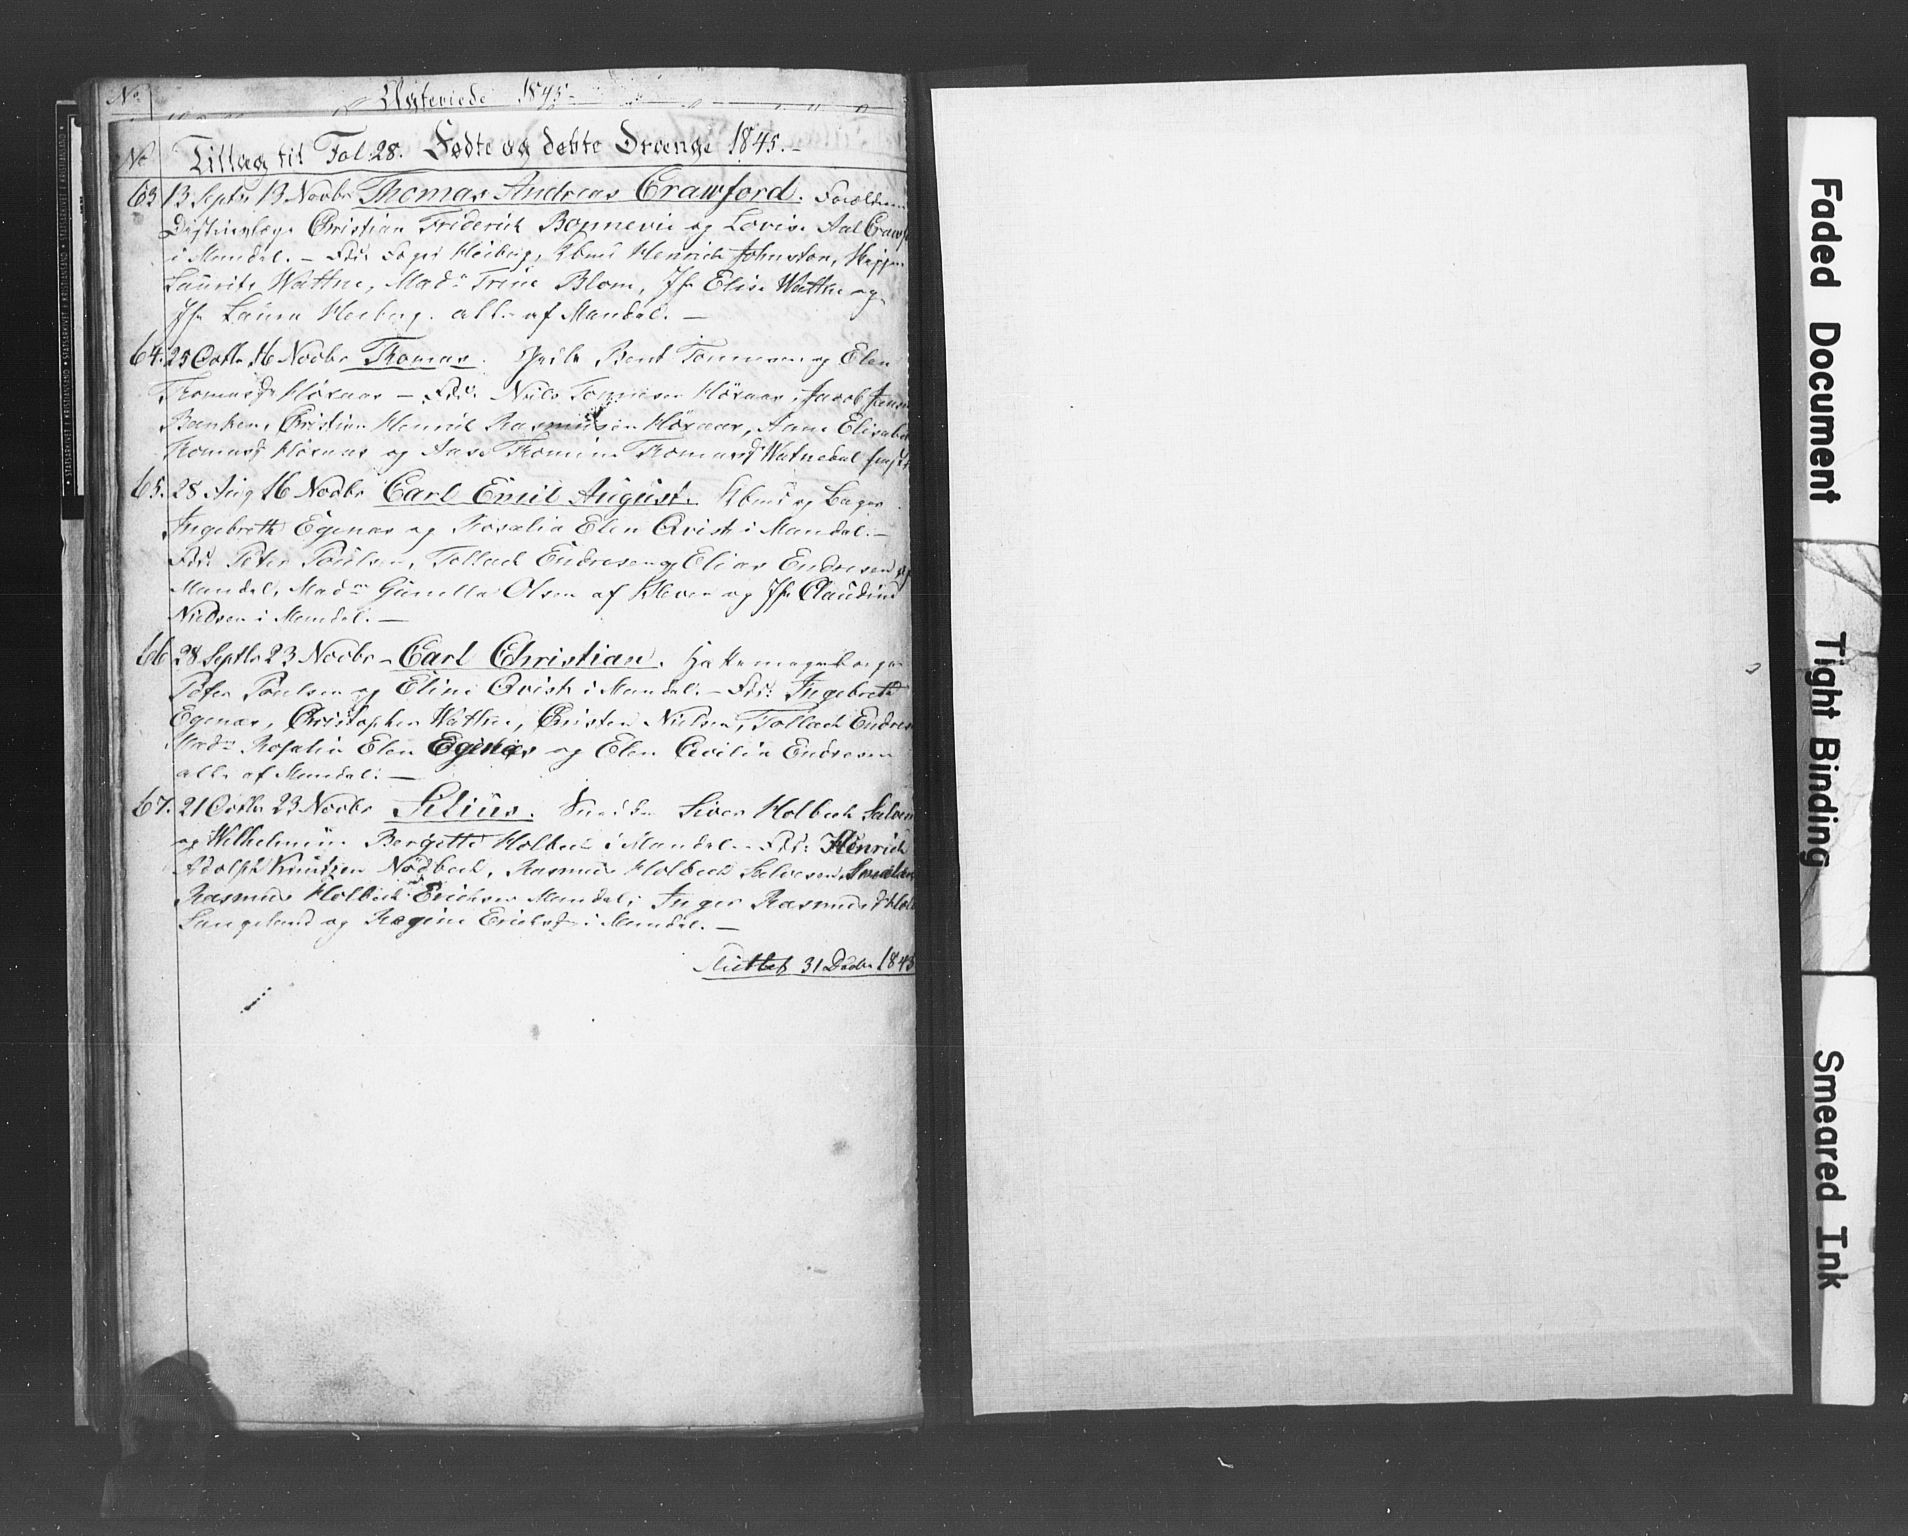 No Ægteviede 1845
No Tillæg til Fol. 28. Fødte og døbte Drenge 1845.-
63. 13 Septbr 13 Novbr Thomas Andreas Crawford. Forældre
Christian Friderich Bonnevie og Lovise Aal Crawf
i Mandal. - Fdr: Foged Heiberg, Kbmd Henrich Johnston, Skipper
Laurits Wattne, Mad. Trine Blom, Jfr Elise Wattne og
Jfr Laura Heiberg. alle af Mandal. -
64. 25 Octbr 16 Novbr Thomas. Bent Tønnesen og Elen
Thomasd Höxaas - Fdr: Niels Tønnesen Höxaas, Jacob Jans
Banken, Christian Henrik Rasmusen Höxaas, Anne Elisabet
Thomasd Höxaas og Thomasd Watnedal
65. 28 Aug 16 Novbr Carl Emil August. Kbmd og Bager
Ingebreth Egenæs og Rosalia Elen Qvist i Mandal. -
Fdr: Peter Poulsen, Tollack Endresen og Elias Endresen af
Mandal, Mad. Gunilla Olsen af Kleven og Jfr Claudine
Nielsen i Mandal. -
66. 28 Septbr 23 Novbr - Carl Christian. Hattemager
Peter Poulsen og Eline Qvist i Mandal. - Fdr: Ingebreth
Egenæs, Christopher Wattne, Christen Nielsen, Tollack Endres
Mad. Rosalia Elen Egenæs og Elen Cecilia Endresen
alle af Mandal. -
67. 21 Octbr 23 Novbr Selius. Sneedker Siver Holbeck Salves
og Wilhelmine Bergitte Holbeck i Mandal - Fdr: Henrich
Adolph Knudzen Nødbeck, Rasmus Holbeck Salvesen,
Rasmus Holbeck Erichsen Mandal, Inger Rasmusd
Langeland og Regine Erichsd i Mandal. -
Sluttet 31 Decbr 1845
STATSARKIVET I KRISTIANSAND
Faded Document
Tight Binding
Smeared Ink